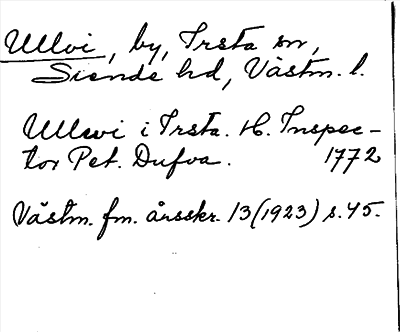 Ullvi, by, Irsta sn,
Siende hd, Västm. l.
Ullevi i Irsta. H. Inspec-
tor Pet. Dufva. 1772
Västm. fm. årsskr. 13 (1923) s. 45.